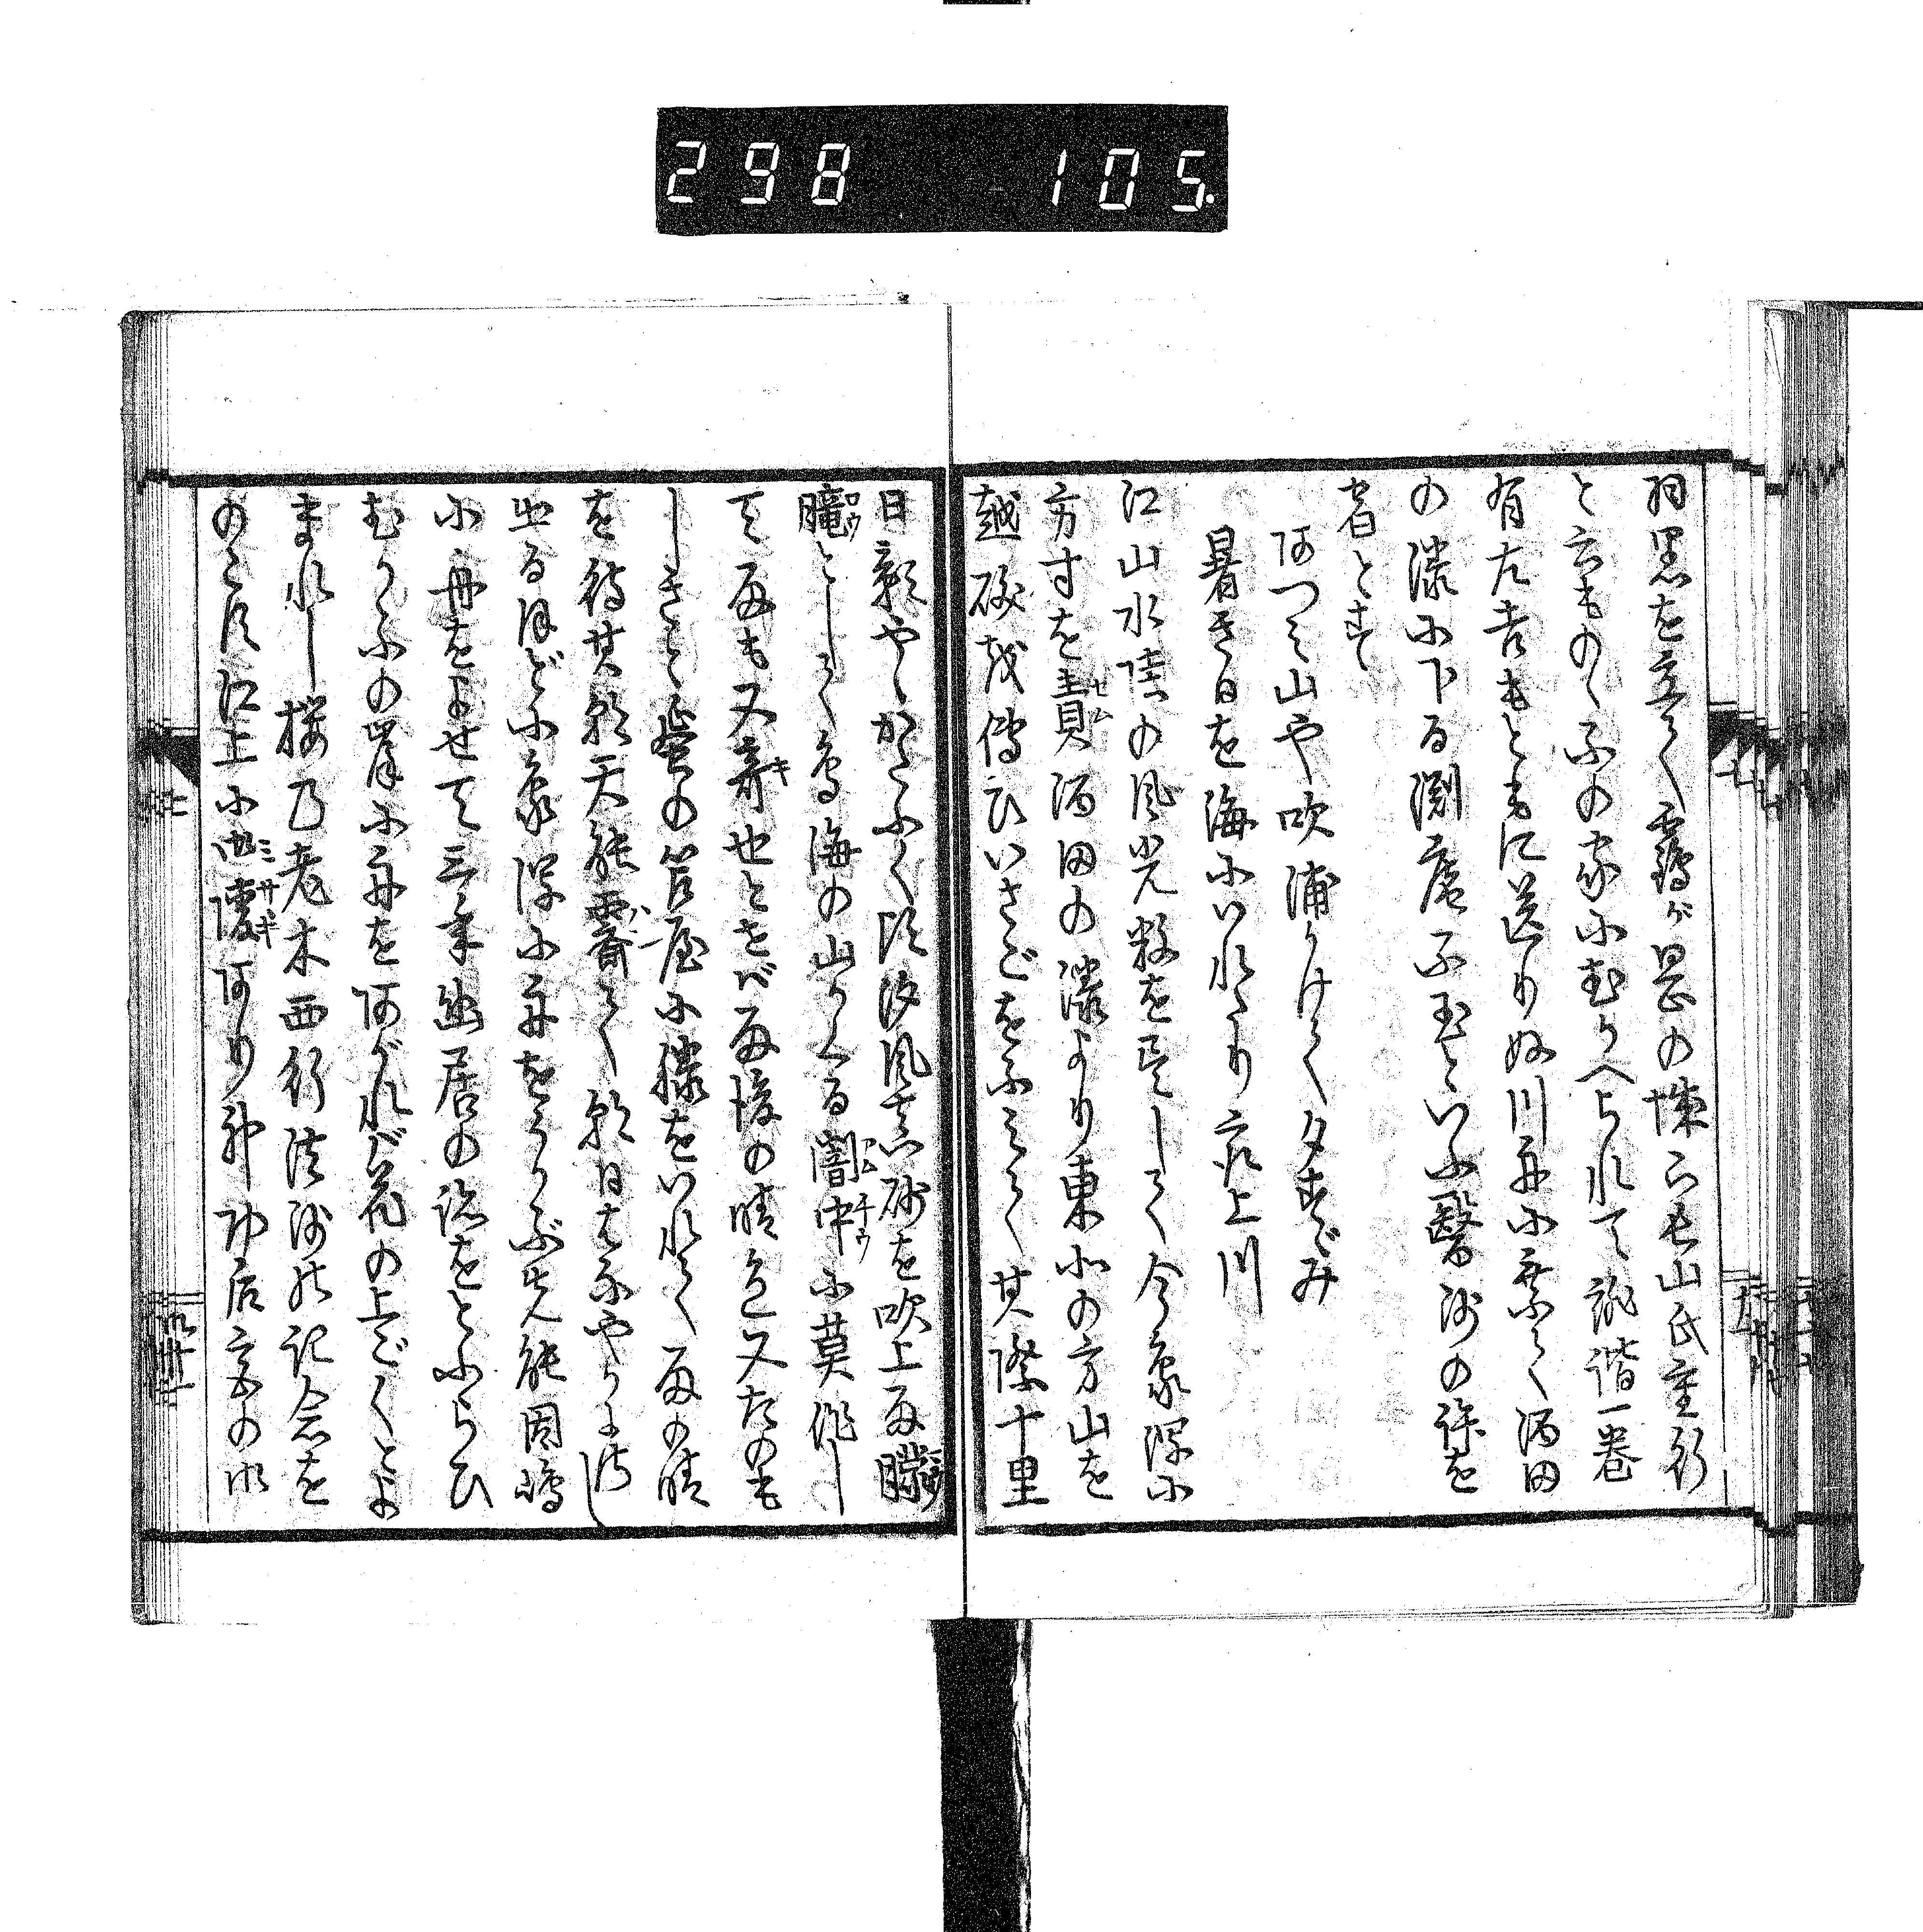 298 105.
羽黒を立て鶴が岡の城下長山氏重行
と云ものゝふの家にむかへられて誹諧一巻
有左吉もともに送りぬ川舟に乗て酒田
の湊に下る淵庵不玉といふ醫師の許を
宿とす
あつみ山や吹浦かけて夕すゞみ
暑き日を海にいれたり最上川
江山水陸の風光数を尽して今象潟に
方寸を責酒田の湊より東北の方山を
越礒を傳ひいさごをふみて其際十里
日影やゝかたふく比汐風真砂を吹上雨朦
朧として鳥海の山かくる闇中に莫作し
て雨も又奇也とせば雨後の晴色又たのも
しきと蜑の笘屋に膝をいれて雨の晴
を待其朝天能霽て朝日はなやかに
出るほどに象潟に舟をうかぶ先能因嶋
に舟をよせて三年幽居の跡をとふらひ
むかふの岸に舟をあがれば花の上こぐとよ
まれし桜の老木西行法師の記念を
のこす江上に御陵あり神功后宮の御